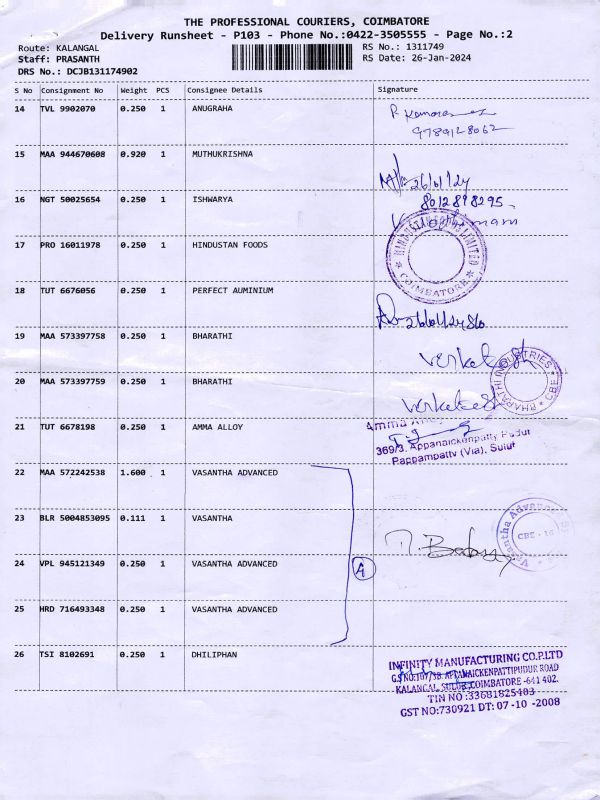 THE PROFESSIONAL COURIERS, COIMBATORE
Delivery Runsheet - P103 - Phone No.:0422-3505555 - Page No.:2
Route: KALANGAL
RS No.: 1311749
Staff: PRASANTH
RS Date: 26-Jan-2024
DRS No.: DCJB131174902
S No Consignment No Weight PCS Consignee Details Signature
14 TVL 9902070 0.250 1 ANUGRAHA
9789128062
15 MAA 944670608 0.920 1 MUTHUKRISHNA
26/01/24
16 NGT 50025654 0.250 1 ISHWARYA
8012898295
17 PRO 16011978 0.250 1 HINDUSTAN FOODS
HINDUSTAN FOODS LIMITED
COIMBATORE
18 TUT 6676056 0.250 1 PERFECT AUMINIUM
26/01/24
19 MAA 573397758 0.250 1 BHARATHI
20 MAA 573397759 0.250 1 BHARATHI
BHARATHI INDUSTRIES CBE
21 TUT 6678198 0.250 1 AMMA ALLOY
Amma
369/3, Appanaickenpatty Pudur
Pappampatty (Via), Sulur
22 MAA 572242538 1.600 1 VASANTHA ADVANCED
23 BLR 5004853095 0.111 1 VASANTHA
Vasantha Advanced
CBE - 16
24 VPL 945121349 0.250 1 VASANTHA ADVANCED
4
25 HRD 716493348 0.250 1 VASANTHA ADVANCED
26 TSI 8102691 0.250 1 DHILIPHAN
INFINITY MANUFACTURING CO.P.LTD
G.S NO:107/3B. APPANAICKENPATTIPUDUR ROAD
KALANGAL, SULUR, COIMBATORE -641 402.
TIN NO :33681825403
GST NO:730921 DT: 07 -10 -2008